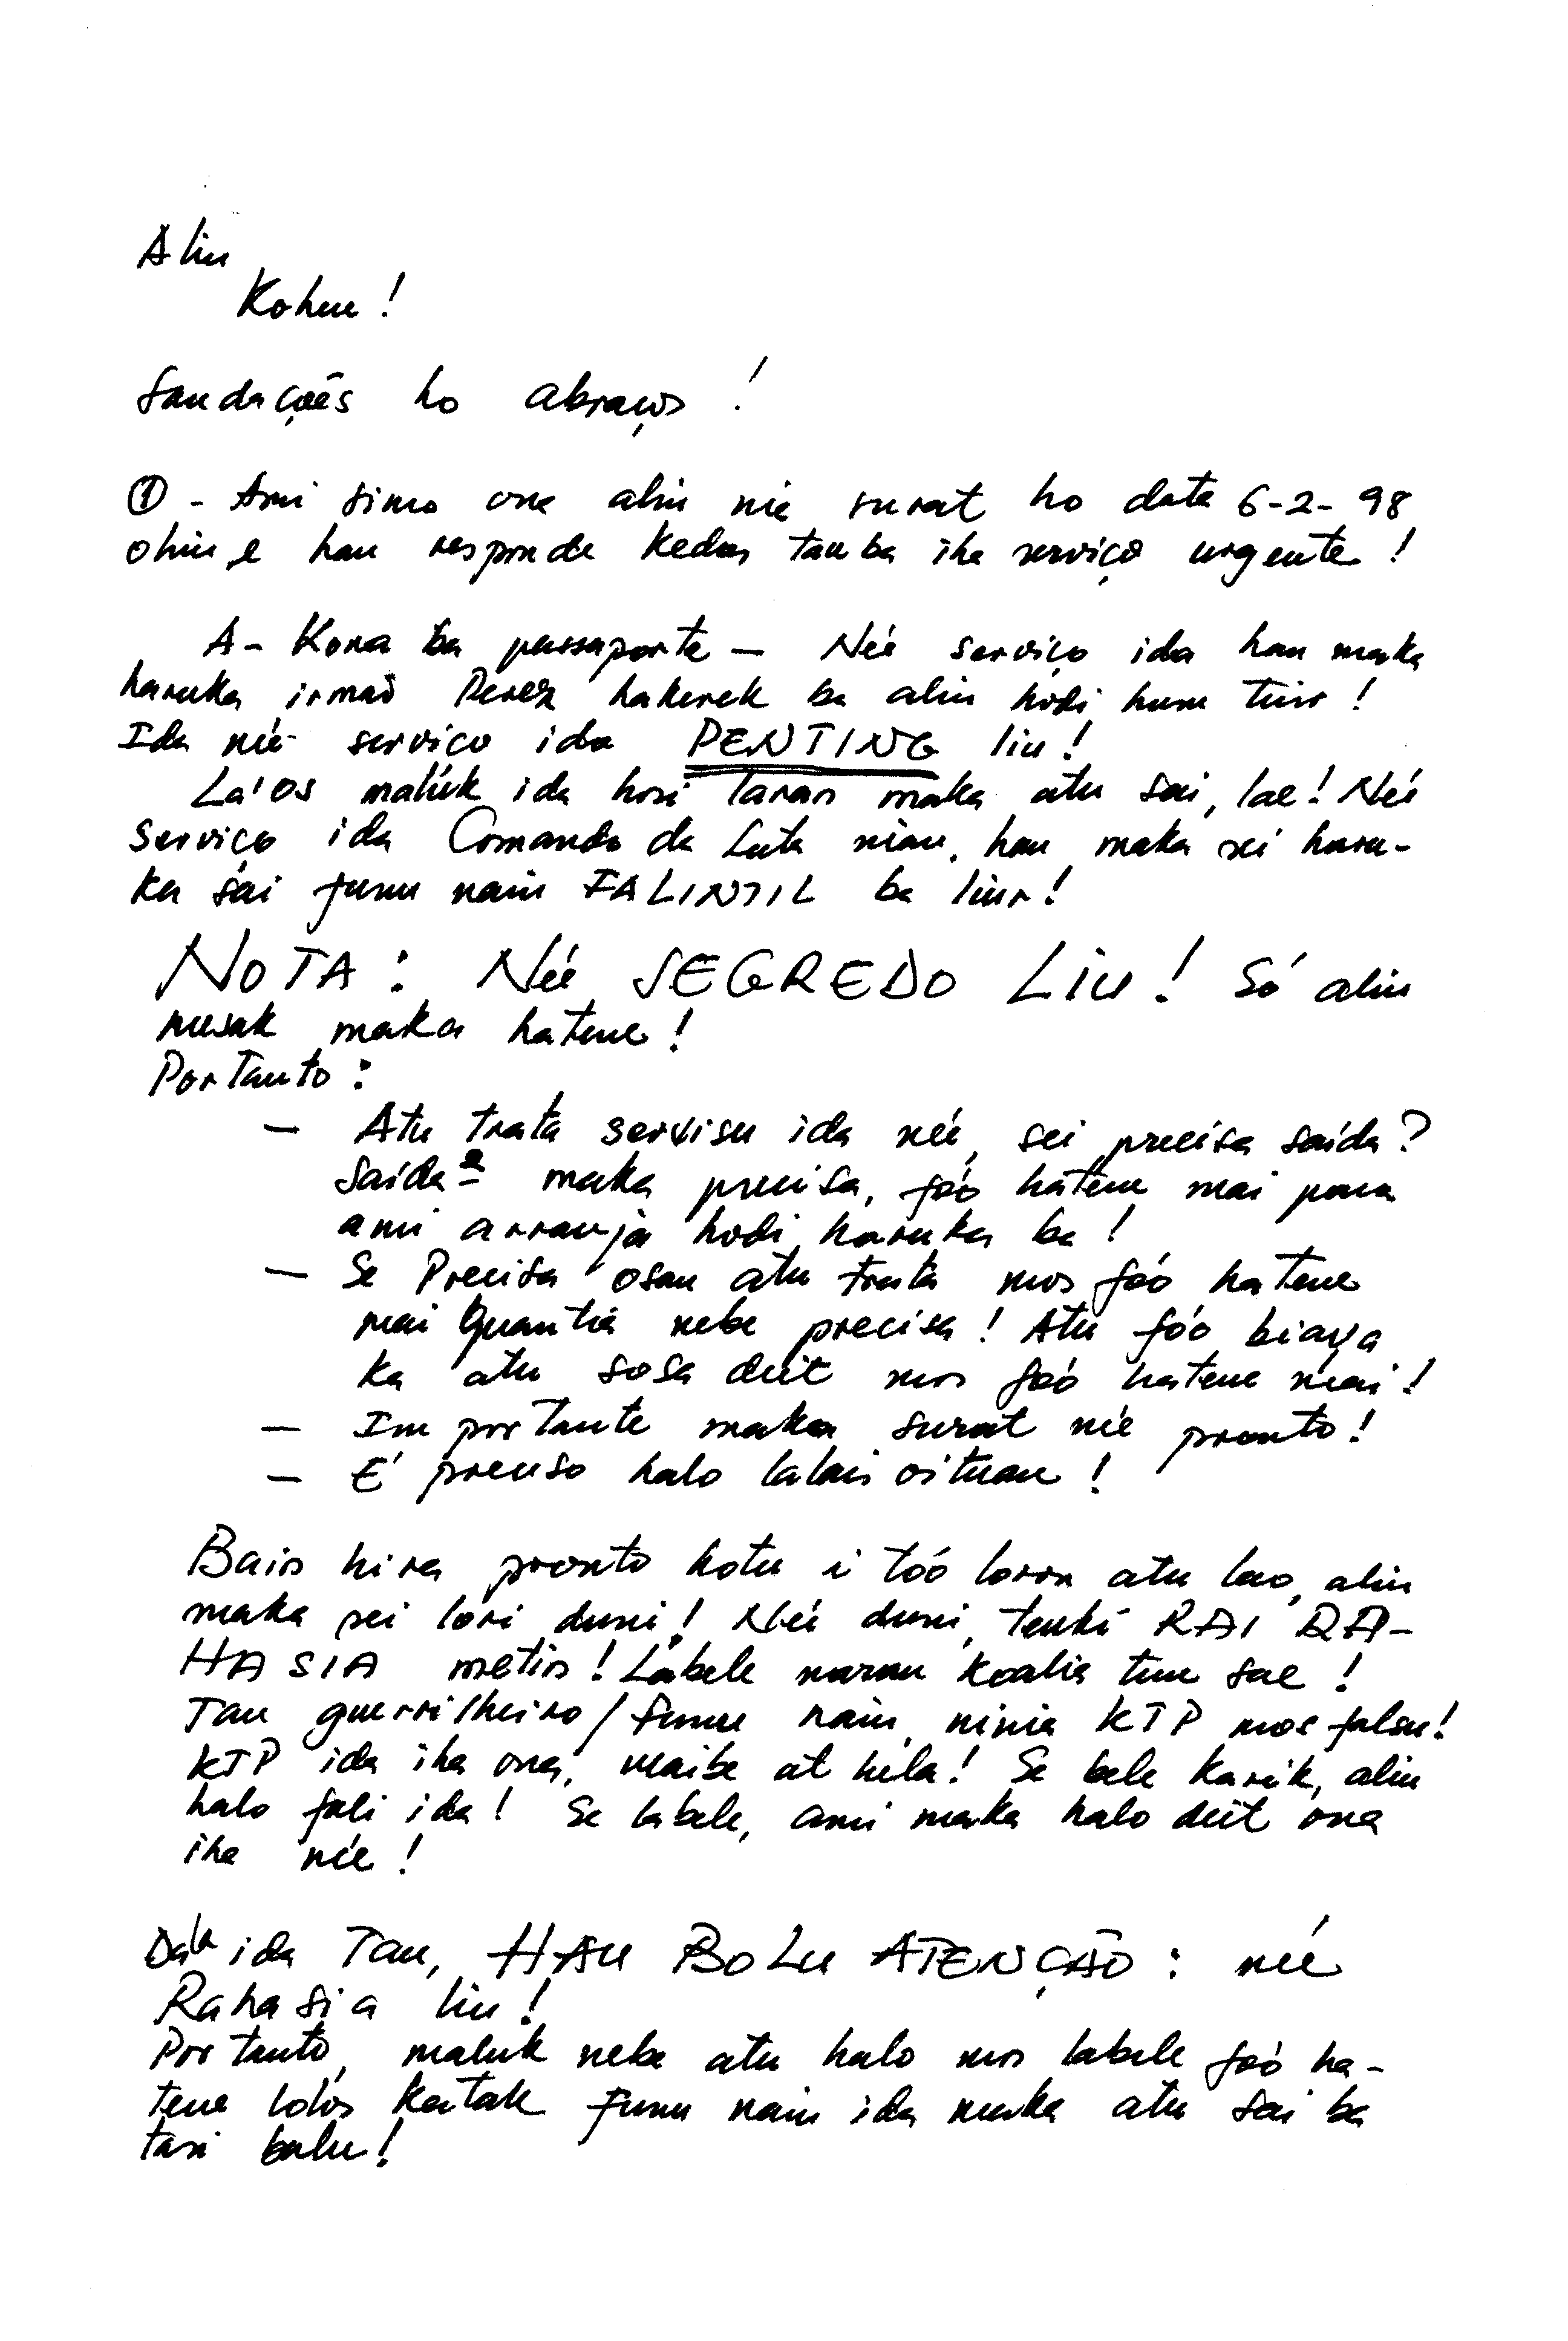 Alin
Kohue!
Saudações ho abraços!
① - Ami simo ona alin nie surat ho data 6-2-98
ohin e hau responde kedas tau ba iha serviço urgente!
A- Kona ba passaporte — Neé serviço ida hau maka
haruka irmaõ Perez hakerek ba alin hodi husu tuir!
Ida neé serviço ida PENTING liu!
La'os malúk ida hosi laran maka atu sai, lae! Neé
serviço ida Comando da Luta nian, hau maka sei haru-
ka sai funu nain FALINTIL ba liur!
NOTA: Neé SEGREDO Liu! Só alin
mesak maka hatene!
Portanto:
— Atu trata servisu ida neé, sei precisa saída?
Saída e maka precisa, foó hatene mai para
ami arranja hodi haruka ba!
— Se Precisa osan atu trata mos foó hatene
mai Quantia nebe precisa! Atu foó biaya
ka atu sosa deit mos foó hatene mai!
— Importante maka surat neé pronto!
— É preciso halo lalais oituan!
Bain hira pronto hotu i toó loron atu lao, alin
maka sei lori duni! Neé duni, tenki RAI RA-
HASIA metin! Labele naran koalia tun sae!
Tau guerrilheiro/funu nain, ninia KTP mos falsu!
KTP ida iha ona, maibe at hela! Se bele karik, alin
halo fali ida! Se labele, ami maka halo deit ona
iha neé!
Dala ida Tan, HAU BOLU ATENÇÃO: neé
Rahasia liu!
Portanto, maluk nebe atu halo mos labele foó ha-
tene lolós katak funu nain ida maka atu sai ba
tasi balu!